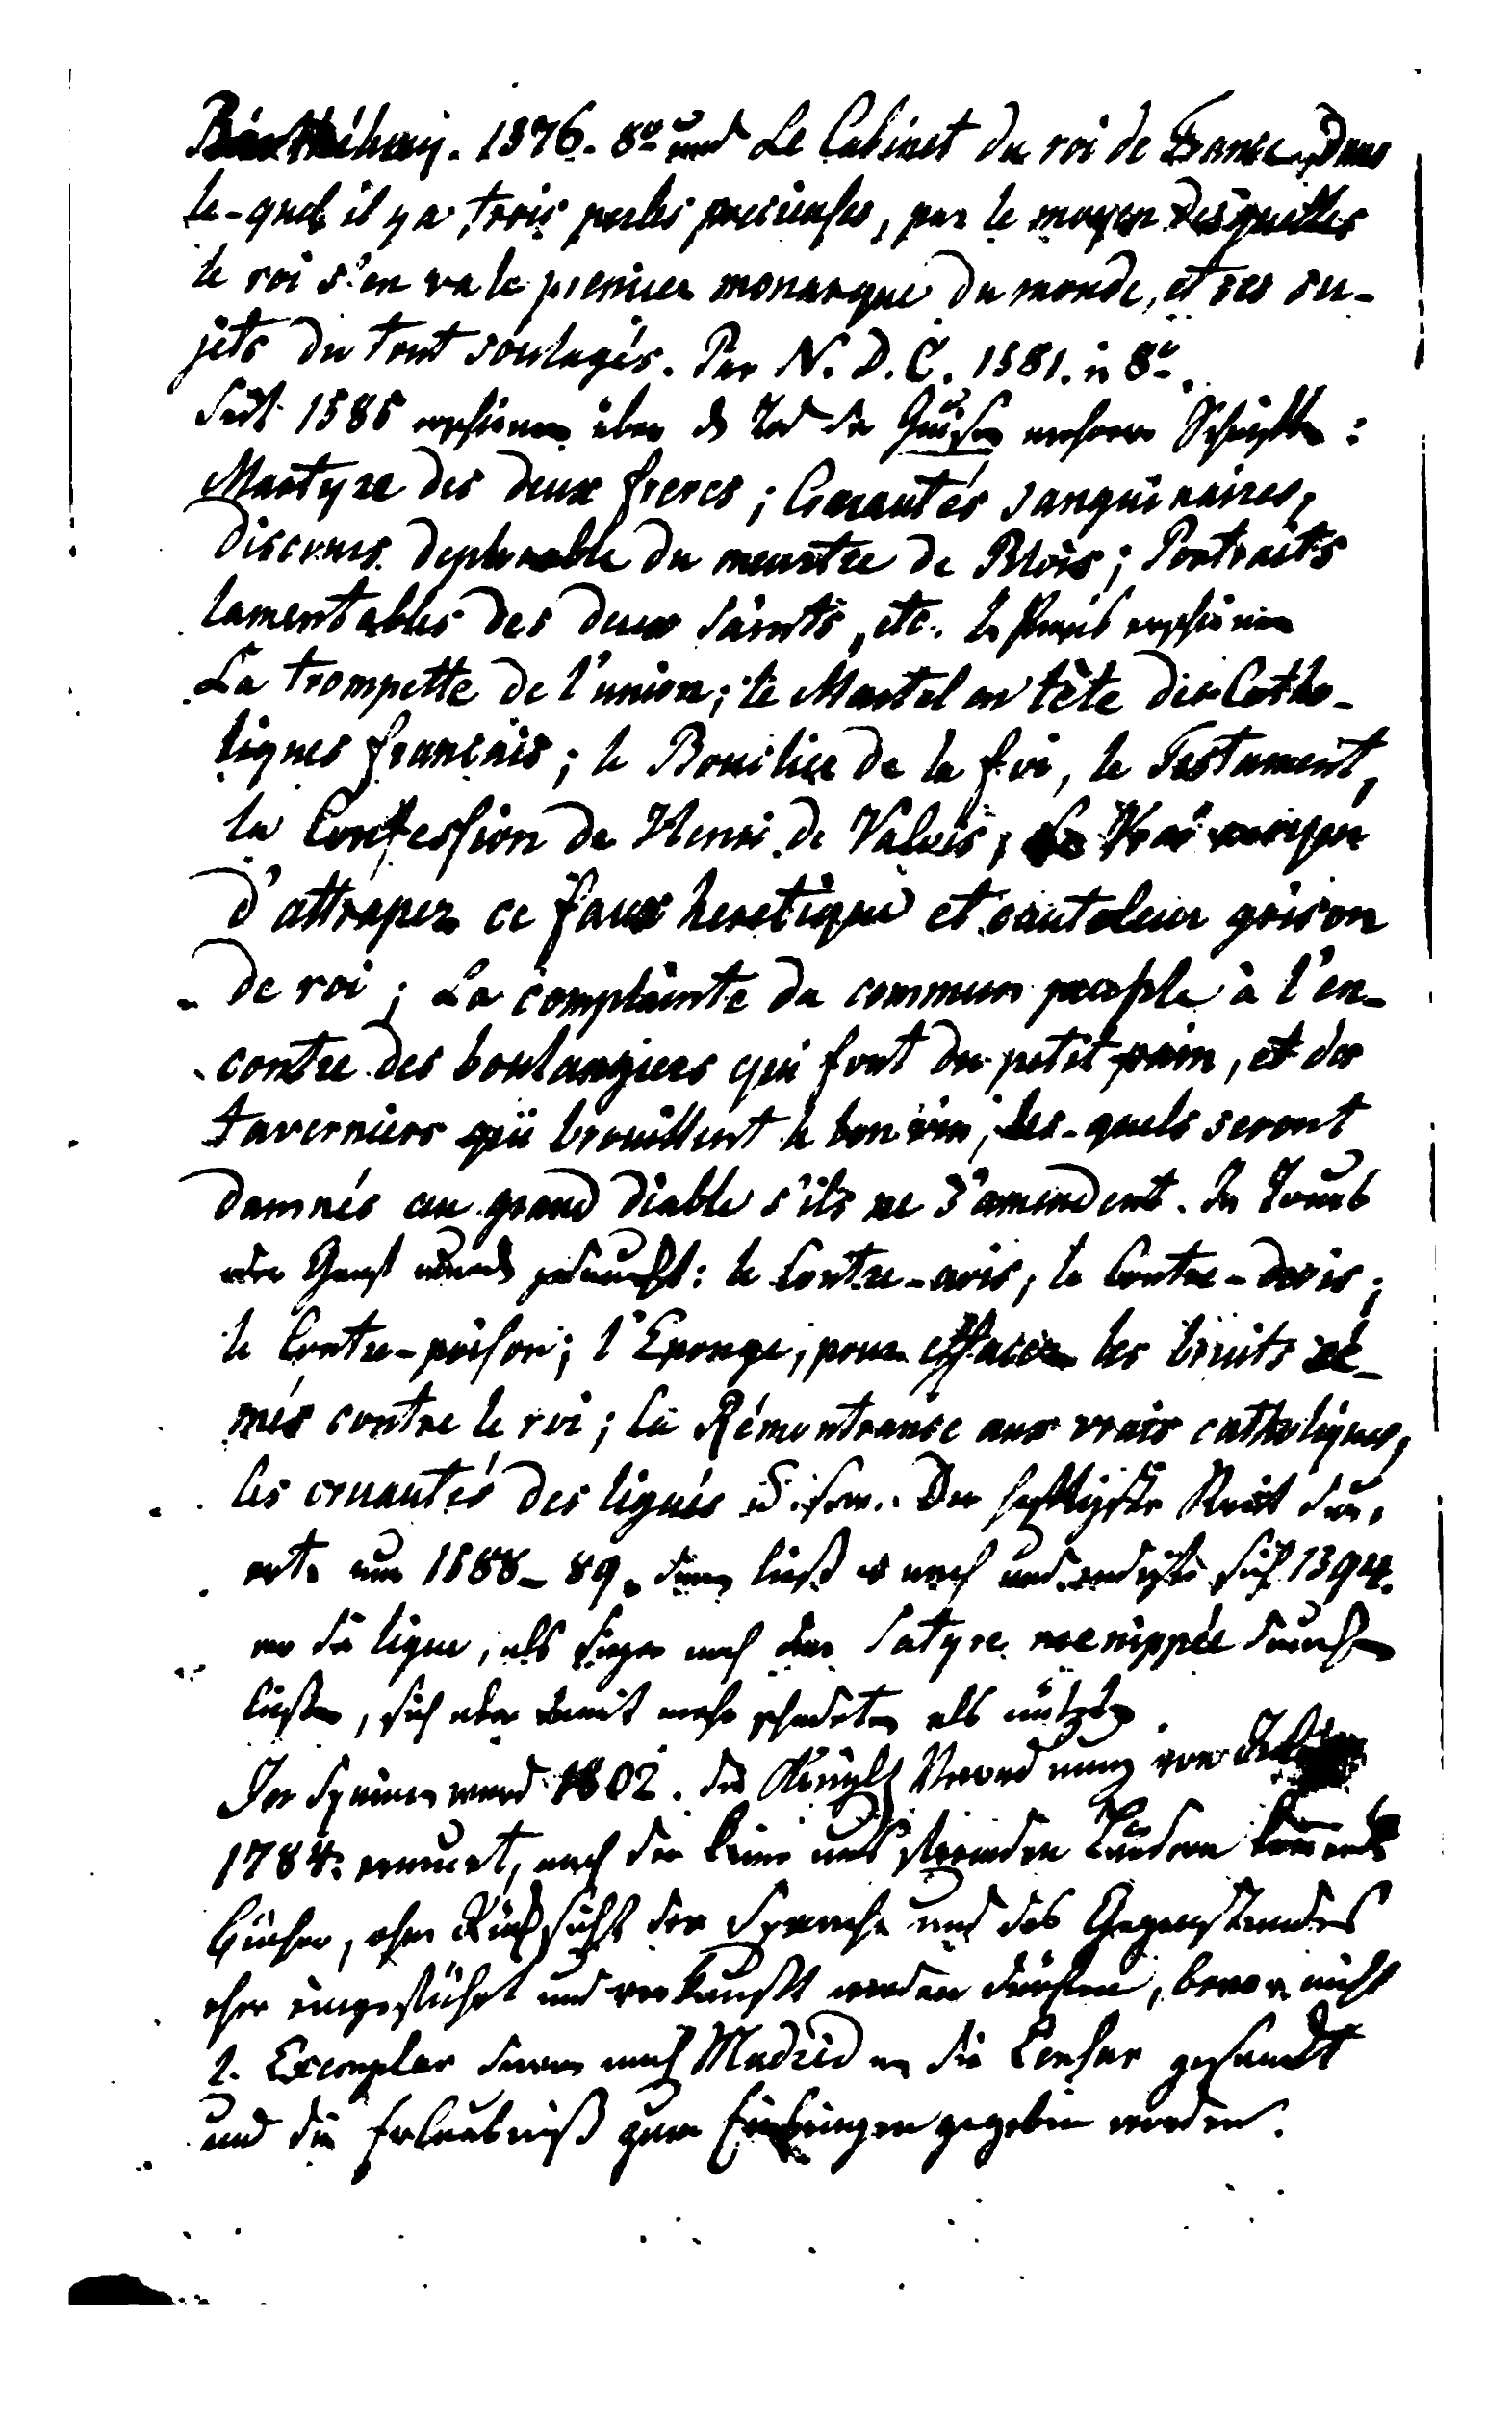 Barthélemy. 1576. 8º und Le Cabinet du roi de France, Dans
le-quel il y a trois perles precieuses, par le moyen desquelles
le roi s'en va le premier monarque du monde, et ses su-
jets du tout soulagés. Par N. D. C. 1581. in 8º.
Seit 1585 erschienen über den Tod der Guisen mehrere Schriften:
Martyre des deux freres; Cruautés sanguinaires,
discours deplorable du meurtre de Blois; Portraits
lamentables des deux saints, etc. In Paris erschienen
La trompette de l'union; le Martel en tête des Catho-
liques français; le Bouclier de la foi, le Testament,
la Confession de Henri de Valois, Vrai moyen
d'attraper ce faux heretique et cauteleux grison
de roi; La complainte du commun peuple à l'en-
contre des boulangiers qui font du petit pain, et des
taverniers qui brouillent le bon vin, les-quels seront
damnés au grand diable s'ils ne s'amendent. In Tours
oder Genf wurde gedruckt: le Contre-avis; le Contre-devis;
le Contre-poison; l'Eponge, pour effacer les bruits se-
més contre le roi; la Rémontrance aux vrais catholiques,
les cruautés des ligués u.s.w. Der heftigste Streit dau-
erte um 1588-89. dann ließ er nach und endigte sich 1594.
wo die ligue, als Sieger noch die Satyre menippée drucken
ließen, sich aber damit mehr schadeten als nützten.
In Spanien ward 1802. die Königl. Verordnung von
1784. erneuert, nach der keine aus fremden Ländern kommende
Bücher, ohne Rücksicht der Sprache und des Gegenstandes
eher eingeführt und verkauft werden dürfen, bevor nicht
1. Exemplar davon nach Madrid an die Censur gesandt
und die Erlaubniß zum Einbringen gegeben worden.